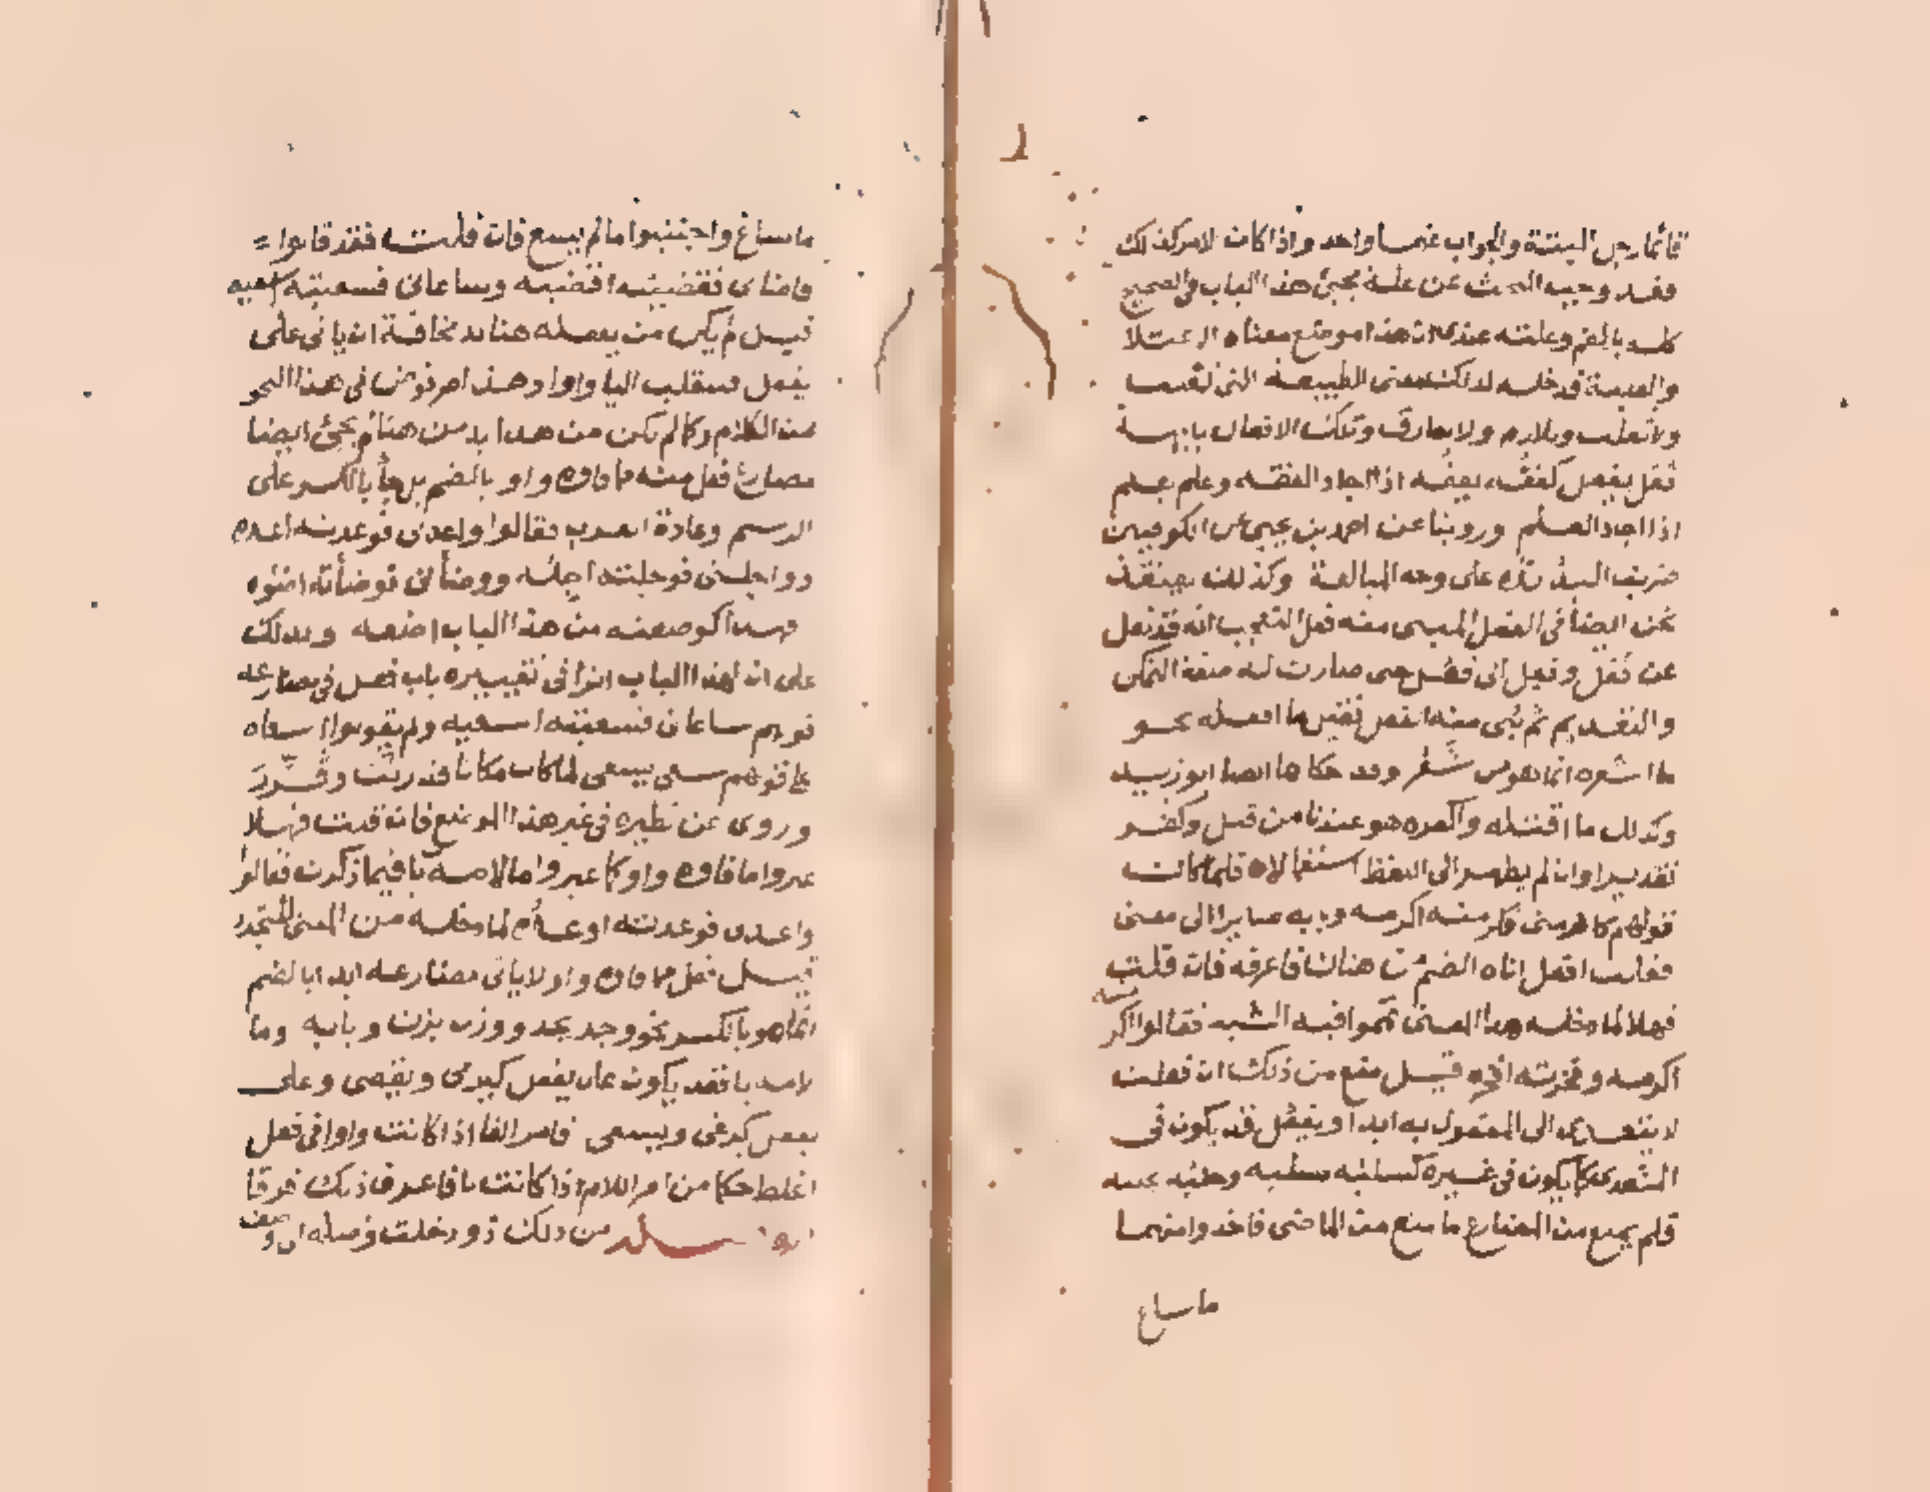 قائما رجل البتة والجواب عنهما واحد واذا كان الامر كذلك
فقد وجب البحث عن علة مجئ هذا الباب في الصحيح
كله بالضم وعلته عندي ان هذا موضع معناه الاعتلا
والغلبة فدخله لذلك معنى الطبيعة التي تغلب
ولا تغلب وتلازم ولا تفارق وتلك الافعال بابها
فعل يفعل كفقه يفقه اذا اجاد الفقه وعلم يعلم
اذا اجاد العلم وروينا عن احمد بن يحيى عن الكوفيين
ضربت اليد يده على وجه المبالغة وكذلك نعتقد
نحن ايضا في الفعل المبني منه فعل التعجب انه قد نقل
عن فعل وفعل الى فعل حتى صارت له صفة التمكن
والتقديم ثم بني منه الفعل فقيل ما افعله نحو
ما اشعره انما هو من شعر وقد حكاها ايضا ابو زيد
وكذلك ما اقتله واكفره هو عندنا من قتل وكفر
تقديرا وان لم يظهر الى اللفظ استعمالا فلما كان
قولهم كارمني فكرمته اكرمه وبابه صايرا الى معنى
فعلت افعل اتاه الضم من هناك فاعرفه فان قلت
فهلا لما دخله هذا المعنى تمموا فيه الشبه فقالوا اكر
مته
اكرمه وفخرته افخره قيل منع من ذلك ان فعلت
لا يتعدى الى المفعول به ابدا ويفعل قد يكون في
المتعدي كما يكون في غيره كسلبه يسلبه وجلبه يجلبه
فلم يمنع من المضارع ما منع من الماضي فاخذوا منهما
ما ساغ
ما ساغ واجتنبوا ما لم يسغ فان قلت فقد قالوا
قاضاني فقضيته اقضيه وساعاني فسعيته اسعيه
قيل لم يكن من يفعله هنا بد مخافة ان ياتي على
يفعل فتقلب اليا واوا وهذا مرفوض في هذا النحو
من الكلام وكما لم يكن من هذا بد من هنا لم يجئ ايضا
مضارع فعل منه مما فاوه واو بالضم بل جا بالكسر على
الرسم وعادة العرب فقالوا واعدني فوعدته اعده
وواجلني فوجلته اجله وواضأني فوضأته اضوه
فهذا كوضعته من هذا الباب اضعه ويدلك
على ان لهذا الباب اثرا في تغييره باب فعل في مضارعه
قولهم ساعاني فسعيته اسعيه ولم يقولوا اسعاه
على قولهم سعى يسعى لما كان مكانا قد رتب وقرر
وروى عن نظيره في غير هذا الموضع فان قلت فهلا
غيروا ما فاوه واو كما غيروا ما لامه يا فيما ذكرت فقالوا
واعدني فوعدته اوعده لما دخله من المعنى المتجدد
قيل فعل مما فاوه واو لا ياتي مضارعه ابدا بالضم
انما هو بالكسر نحو وجد يجد ووزن يزن وبابه وما
لامه يا فقد يكون على يفعل كيرمي ويقضي وعلى
يفعل كيرعى ويسعى فامر الفا اذا كانت واوا في فعل
اغلظ حكما من امر اللام اذا كانت يا فاعرف ذلك فرقا
من ذلك ذو دخلت وصلة الى وصف